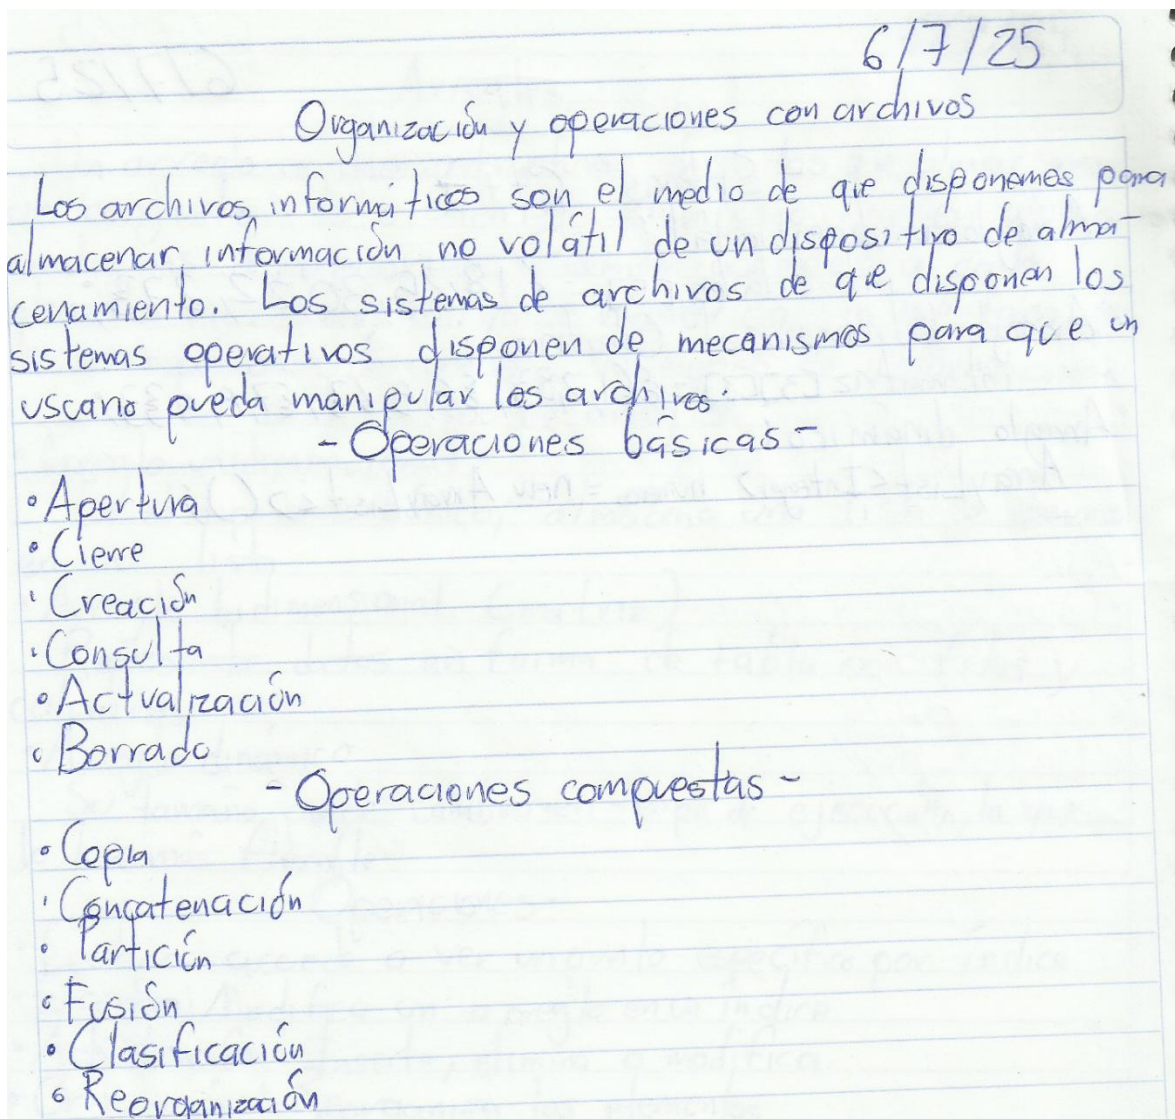 6/7/25
Organización y operaciones con archivos
Los archivos informáticos son el medio de que disponemos para
almacenar información no volátil de un dispositivo de alma-
cenamiento. Los sistemas de archivos de que disponen los
sistemas operativos disponen de mecanismos para que un
uscario pueda manipular los archivos.
- Operaciones básicas -
• Apertura
• Cierre
• Creación
• Consulta
• Actualización
• Borrado
- Operaciones compuestas -
• Copia
• Concatenación
• Partición
• Fusión
• Clasificación
• Reorganización